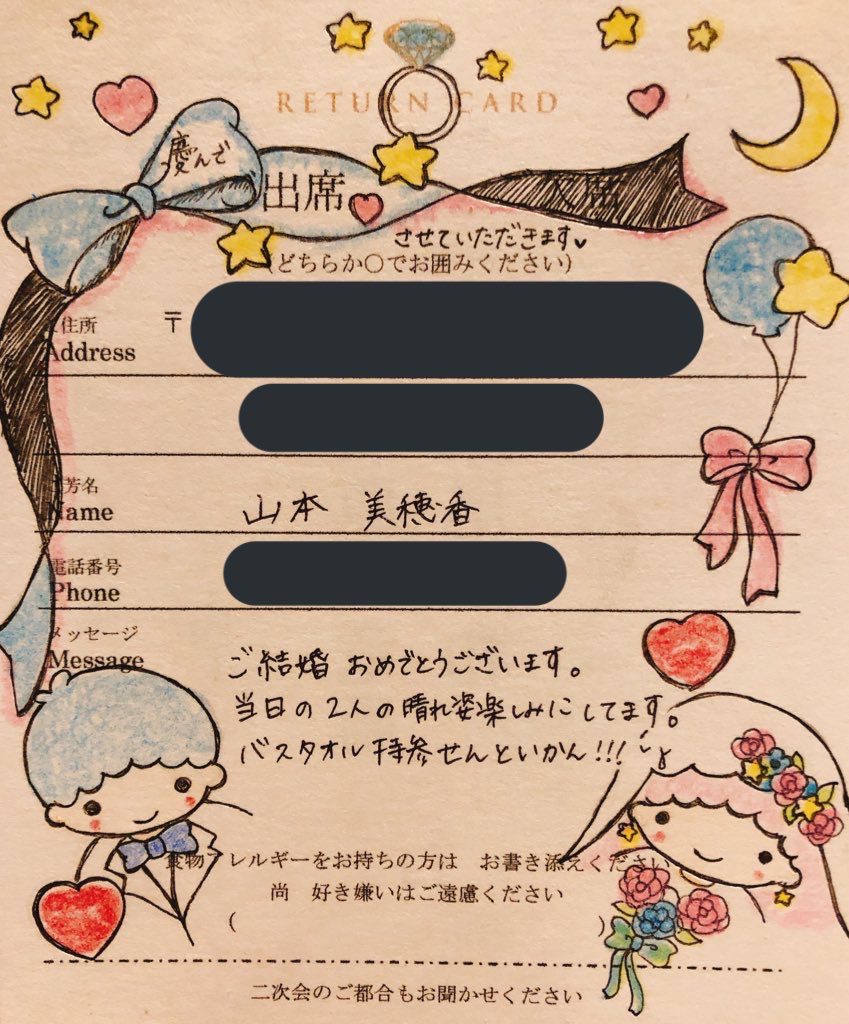 RETURN CARD
慶んで
ご出席
欠席
させていただきます
(どちらか〇でお囲みください)
ご住所
〒
Address
ご芳名
Name
山本 美穂香
電話番号
Phone
メッセージ
Message
ご結婚 おめでとうございます。
当日の2人の晴れ姿楽しみにしてます。
バスタオル持参せんといかん!!!
食物アレルギーをお持ちの方は お書き添えください
尚 好き嫌いはご遠慮ください
( )
二次会のご都合もお聞かせください